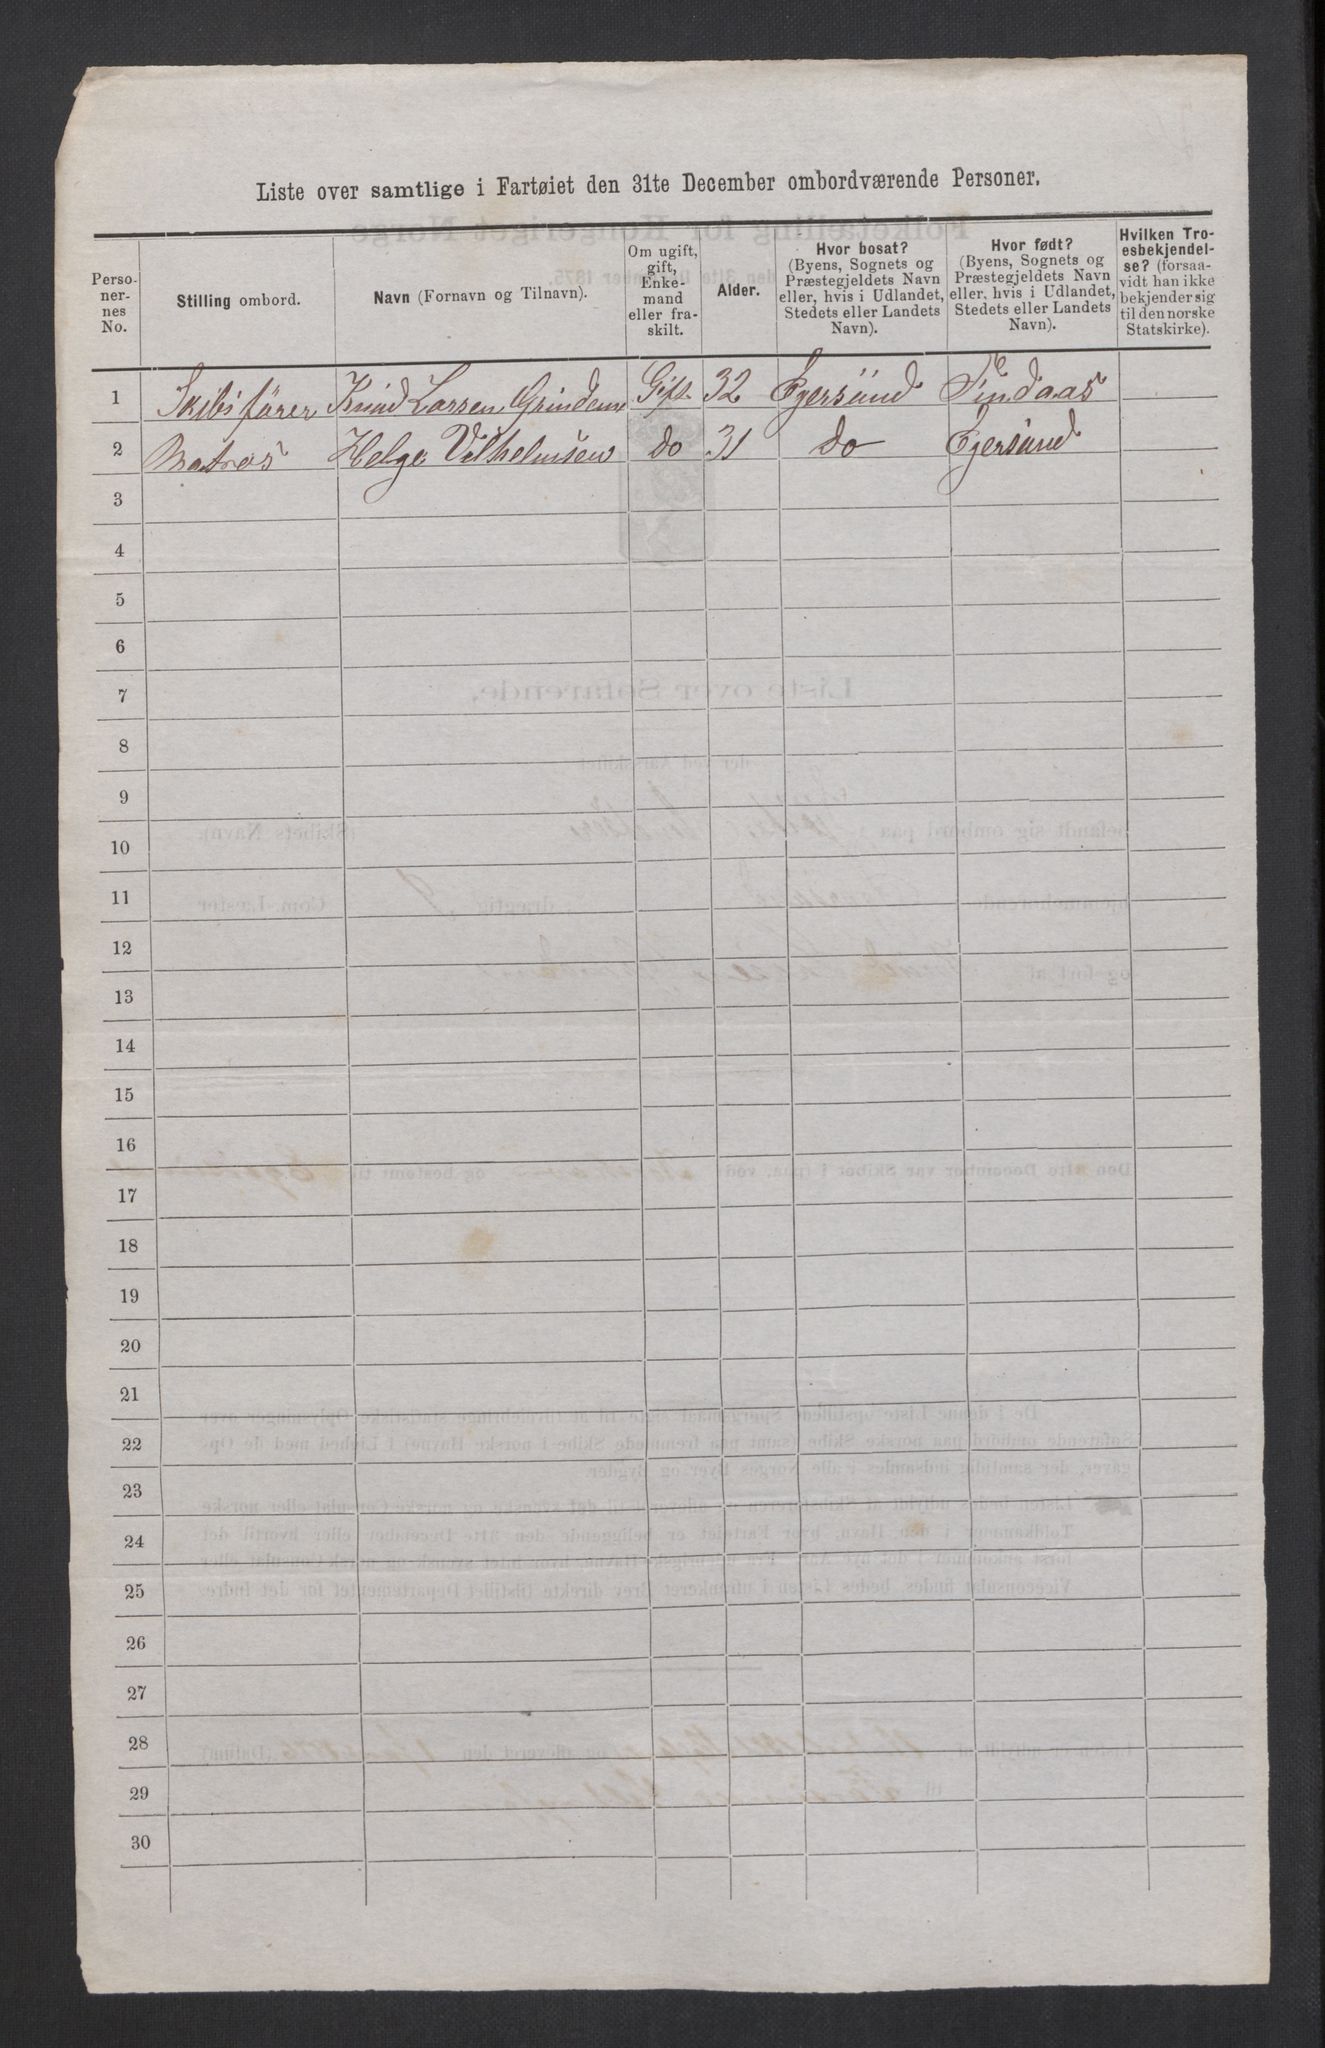 Liste over samtlige i Fartøiet den 31te December ombordværende Personer.
Perso-
ner-
nes
No.
Stilling ombord.
Navn (Fornavn og Tilnavn).
Om ugift,
gift,
Enke-
mand
eller fra-
skilt.
Alder.
Hvor bosat?
(Byens, Sognets og
Præstegjeldets Navn
eller, hvis i Udlandet,
Stedets eller Landets
Navn).
Hvor født?
(Byens, Sognets og
Præstegjeldets Navn
eller, hvis i Udlandet,
Stedets eller Landets
Navn).
Hvilken Tro-
esbekjendel-
se? (forsaa-
vidt han ikke
bekjender sig
til den norske
Statskirke).
1 Skibsfører Knud Larsen Grindem Gift 32 Egersund Tindaas
2 Matros Helge Vilhelmsen do 31 do Egersund
3
4
5
6
7
8
9
10
11
12
13
14
15
16
17
18
19
20
21
22
23
24
25
26
27
28
29
30